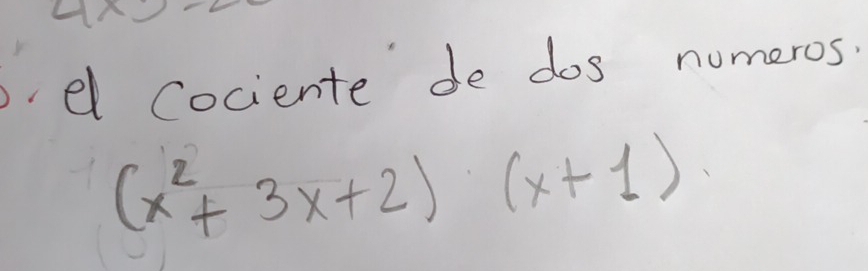 el cociente de dos numeros.
(x² + 3x+2) (x+1).